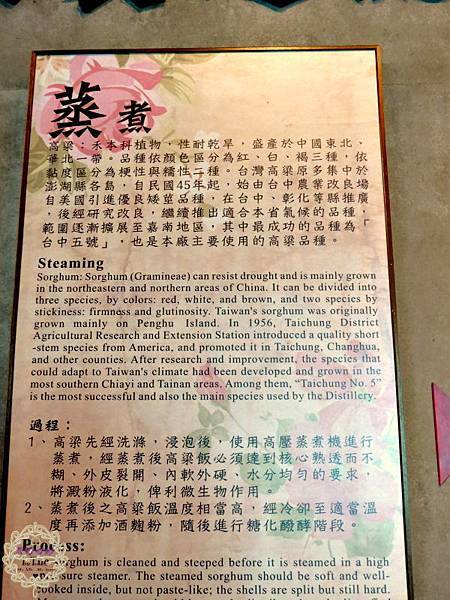 蒸煮
高梁：禾本科植物，性耐乾旱，盛產於中國東北、
華北一帶。品種依顏色區分為紅、白、褐三種，依
黏度區分為梗性與糯性二種。台灣高梁原多集中於
澎湖縣各島，自民國45年起，始由台中農業改良場
自美國引進優良矮莖品種，在台中、彰化等縣推廣
，後經研究改良，繼續推出適合本省氣候的品種，
範圍逐漸擴展至嘉南地區，其中最成功的品種為「
台中五號」，也是本廠主要使用的高梁品種。
Steaming
Sorghum: Sorghum (Gramineae) can resist drought and is mainly grown
in the northeastern and northern areas of China. It can be divided into
three species, by colors: red, white, and brown, and two species by
stickiness: firmness and glutinosity. Taiwan's sorghum was originally
grown mainly on Penghu Island. In 1956, Taichung District
Agricultural Research and Extension Station introduced a quality short
-stem species from America, and promoted it in Taichung, Changhua,
and other counties. After research and improvement, the species that
could adapt to Taiwan's climate had been developed and grown in the
most southern Chiayi and Tainan areas. Among them, "Taichung No. 5"
is the most successful and also the main species used by the Distillery.
過程：
1、高梁先經洗滌，浸泡後，使用高壓蒸煮機進行
蒸煮，經蒸煮後高梁飯必須達到核心熟透而不
糊、外皮裂開、內軟外硬、水分均勻的要求，
將澱粉液化，俾利微生物作用。
2、蒸煮後之高梁飯溫度相當高，經冷卻至適當溫
度再添加酒麴粉，隨後進行糖化醱酵階段。
Process:
sorghum is cleaned and steeped before it is steamed in a high
pressure steamer. The steamed sorghum should be soft and well-
cooked inside, but not paste-like; the shells are split but still hard.